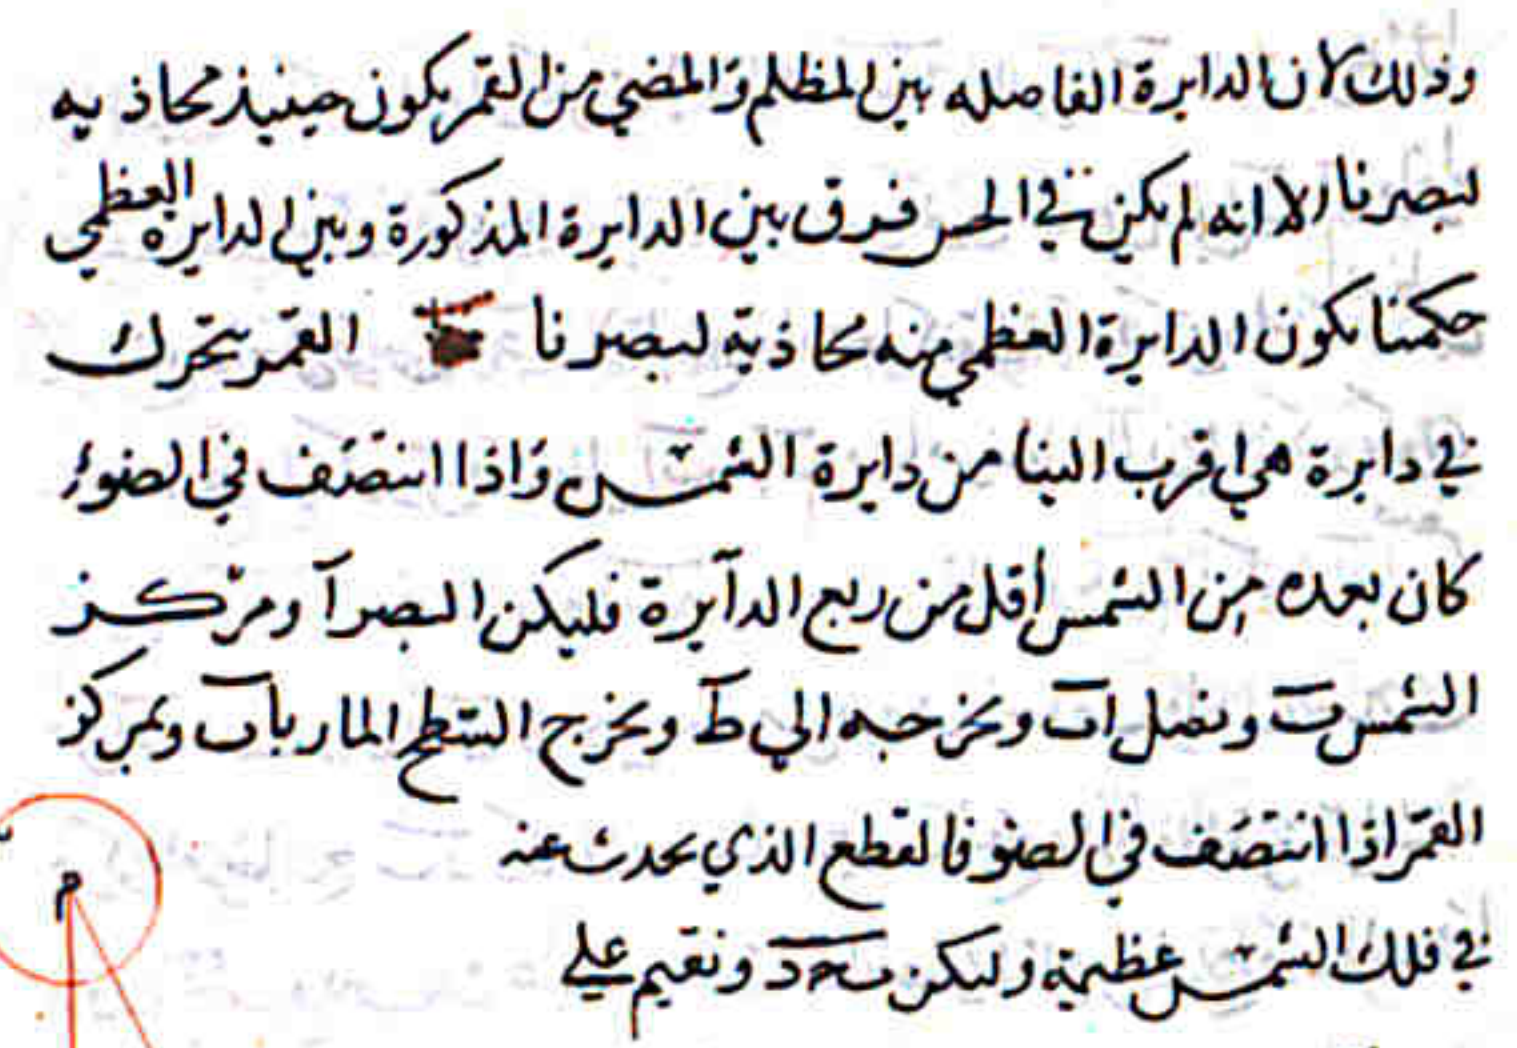 وذلك لان الدايرة الفاصله بين المظلم والمضي من القمر يكون حينيذ محاذيه
لبصرنا الا انه لم يكن في الحس فرق بين الدايرة المذكورة وبين الدايرة العظمي
حكمنا بكون الدايرة العظمي منه محاذية لبصرنا القمر يتحرك
في دايرة هي اقرب الينا من دايرة الشمس واذا انتصف في الضوء
كان بعده من الشمس أقل من ربع الدآيرة فليكن البصر آ ومركز
الشمس ب ونصل اب ونخرجه الي ط ونخرج السطح المار باب وبمركز
القمر اذا انتصف في الضو فالقطع الذي يحدث عنه
في فلك الشمس عظيمة وليكن بحد ونقيم علي
م